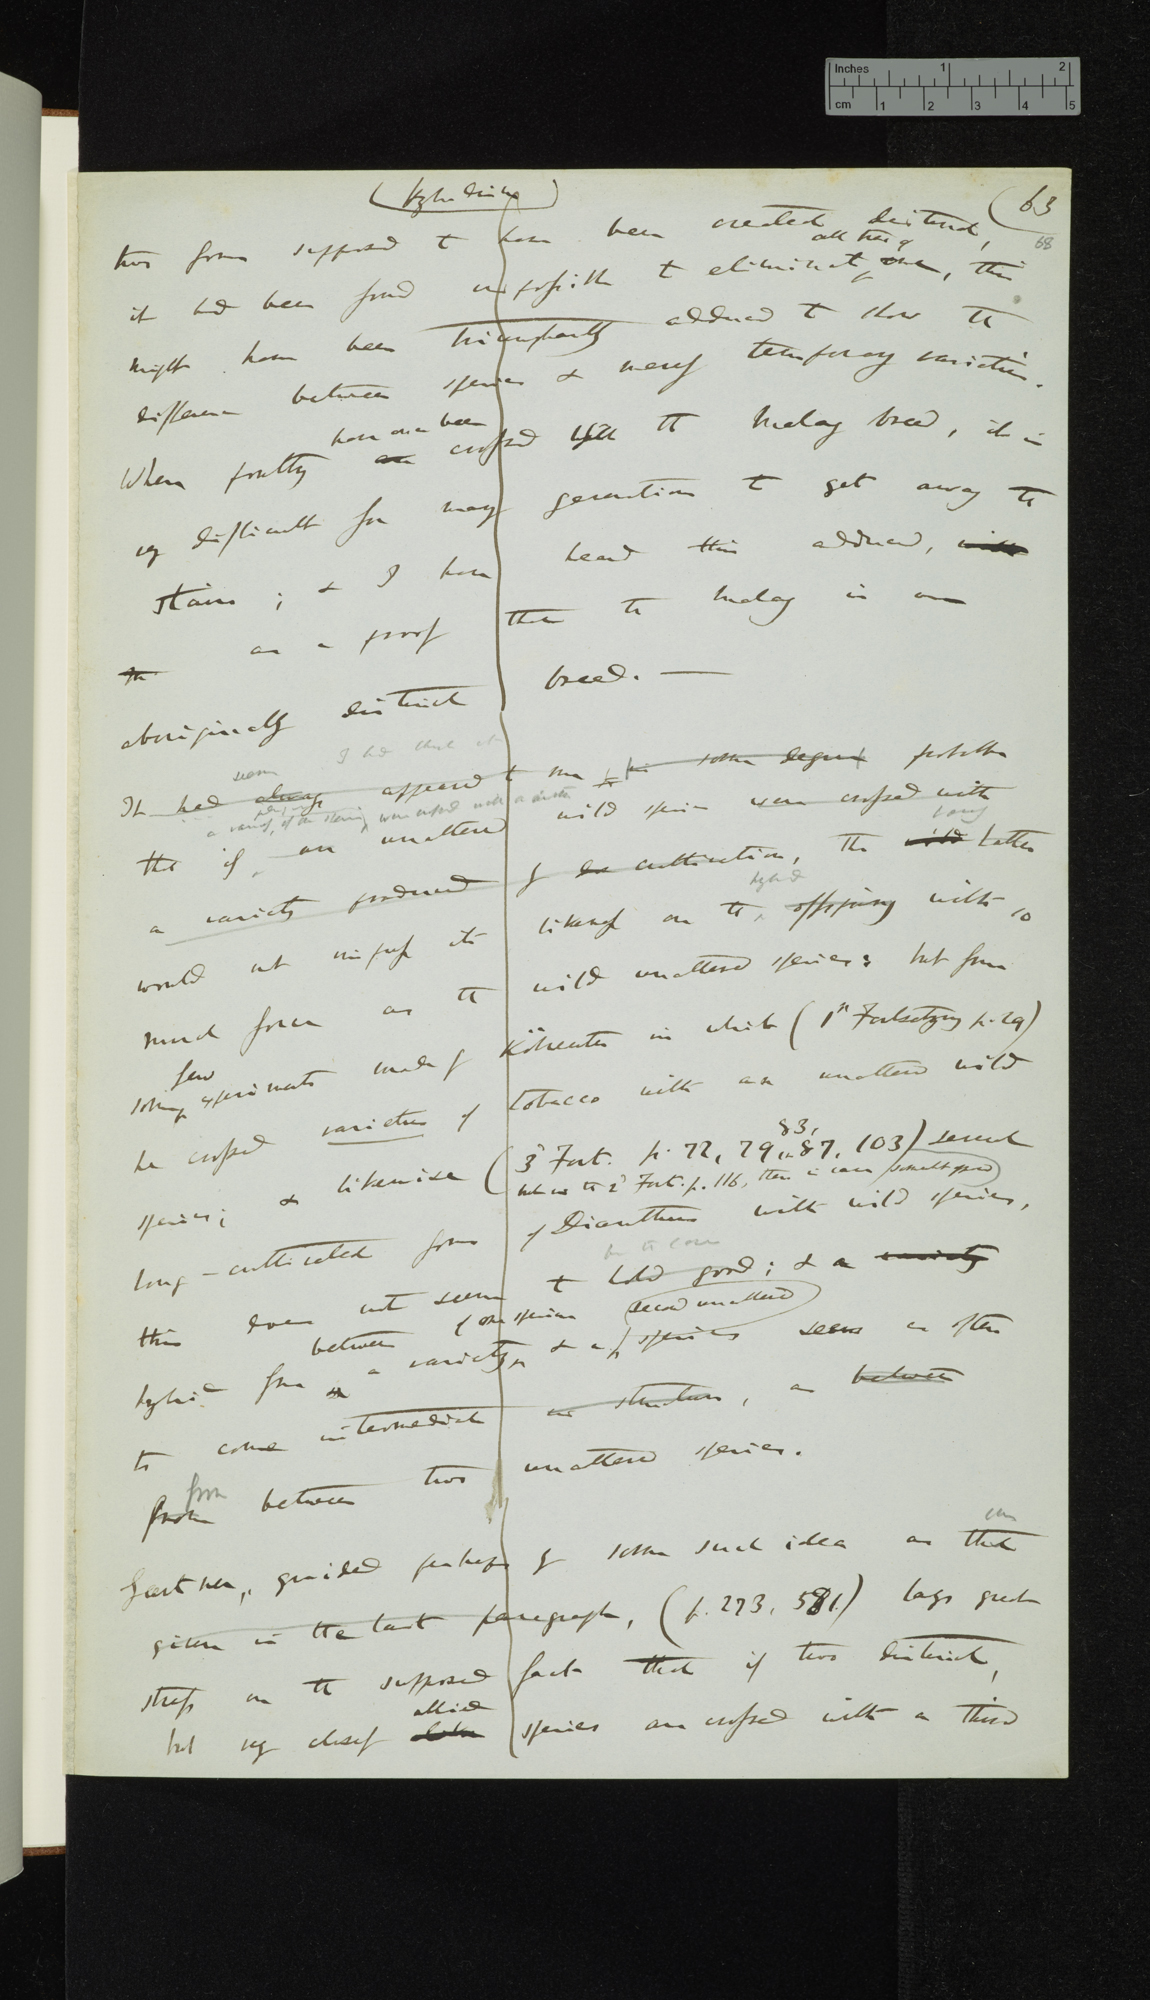 Inches 1 2
cm 1 2 3 4 5
(Hybridism)
(63
68
two forms supposed to have been created distinct,
all traces of
it had been found impossible to eliminate one, this
might have been triumphantly adduced to show the
difference between species & merely temporary varieties.
have once been
When poultry are crossed with the Malay breed, it is
very difficult for many generations to get away the
stain; & I have heard this adduced, with
the as a proof that the Malay is an
aboriginally distinct breed. —
seem I had thought it
It had always appeared to me in some degree probable
a variety, of the same were crossed with a distinct
that if an unaltered wild species were crossed with
being
a variety produced by cultivation, the wild latter
hybrid
would not impress its likeness on the offspring with so
much force as the wild unaltered species: but from
few
some experiments made by Kölreuter in which (1st Fortsetzung p. 29)
he crossed varieties of tobacco with an unaltered wild
83,
species; & likewise (3d Fort. p. 72, 79, 87, 103) several
but in the 2d Fort. p. 116, there is case
long-cultivated forms of Dianthus with wild species,
be the case
this does not seem to hold good; & a variety
between of one species second unaltered
hybrid from a variety & a species seems as often
to come intermediate in structure, as between
from
from between two unaltered species.
Gärtner, guided perhaps by some such idea as that
given in the last paragraph, (p. 273, 581.) lays great
stress on the supposed fact that if two distinct,
allied
but very closely species are crossed with a third